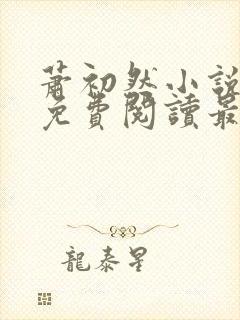 蕭初然小說
免費閱讀最
龍泰星